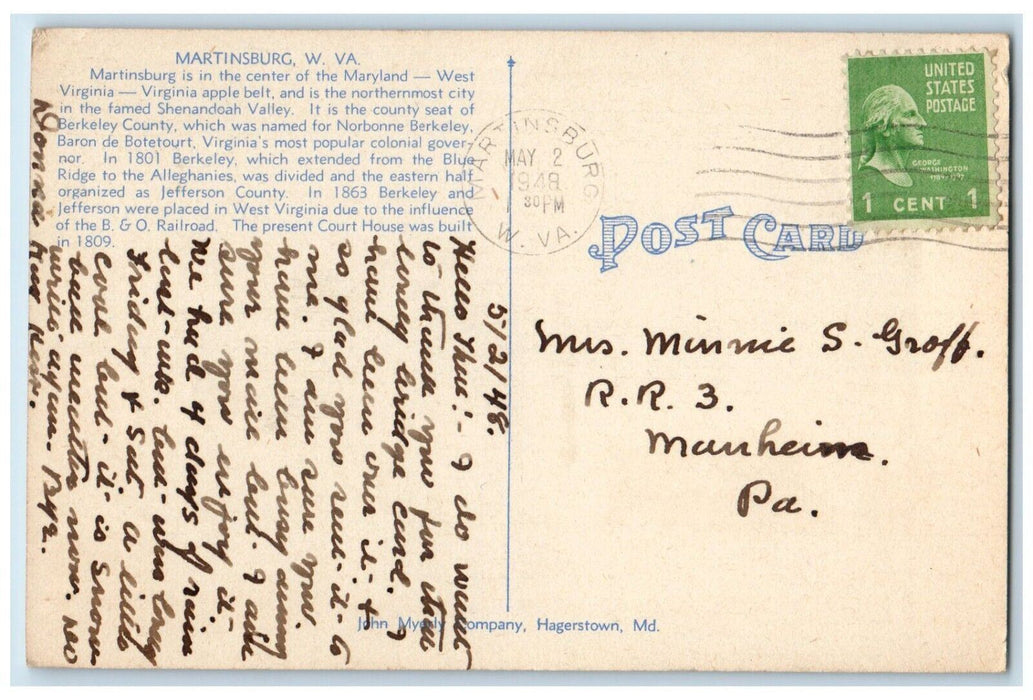 MARTINSBURG, W. VA.
Martinsburg is in the center of the Maryland — West
Virginia — Virginia apple belt, and is the northernmost city
in the famed Shenandoah Valley. It is the county seat of
Berkeley County, which was named for Norbonne Berkeley,
Baron de Botetourt, Virginia's most popular colonial gover-
nor. In 1801 Berkeley, which extended from the Blue
Ridge to the Alleghanies, was divided and the eastern half
organized as Jefferson County. In 1863 Berkeley and
Jefferson were placed in West Virginia due to the influence
of the B. & O. Railroad. The present Court House was built
in 1809.
5/2/48.
Hello Thue:- I do want
to thank you for the
lovely bridge card. I
have been over it - &
so glad you sent it to
me. I am sure you
have been busy during
your mail
sure you enjoy it.
We had 4 days of rain
last wk. but was
Friday & Sat. a little
cool but it is
here
write again - Bye.
Donna
MARTINSBURG
MAY 2
1948
30 PM
W. VA.
UNITED
STATES
POSTAGE
GEORGE
WASHINGTON
1789-1797
1 CENT 1
POST CARD
Mrs. Minnie S. Groff.
R. R. 3.
Manheim.
Pa.
John Myerly Company, Hagerstown, Md.